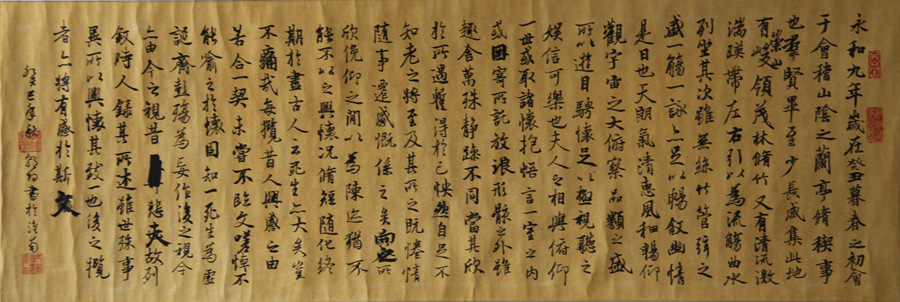 永和九年歲在癸丑暮春之初會
于會稽山陰之蘭亭脩稧事
也羣賢畢至少長咸集此地
有崇山峻領茂林脩竹又有清流激
湍暎帶左右引以為流觴曲水
列坐其次雖無絲竹管弦之
盛一觴一詠亦足以暢敘幽情
是日也天朗氣清惠風和暢仰
觀宇宙之大俯察品類之盛
所以遊目騁懷足以極視聽之
娛信可樂也夫人之相與俯仰
一世或取諸懷抱悟言一室之內
或因寄所託放浪形骸之外雖
趣舍萬殊靜躁不同當其欣
於所遇暫得於己怏然自足不
知老之將至及其所之既惓情
隨事遷感慨係之矣向之所
欣俛仰之間以為陳迹猶不
能不以之興懷況脩短隨化終
期於盡古人云死生亦大矣豈
不痛哉每攬昔人興感之由
若合一契未嘗不臨文嗟悼不
能喻之於懷固知一死生為虛
誕齊彭殤為妄作後之視今
亦由今之視昔悲夫故列
敘時人錄其所述雖世殊事
異所以興懷其致一也後之攬
者亦將有感於斯文
癸巳年秋書於